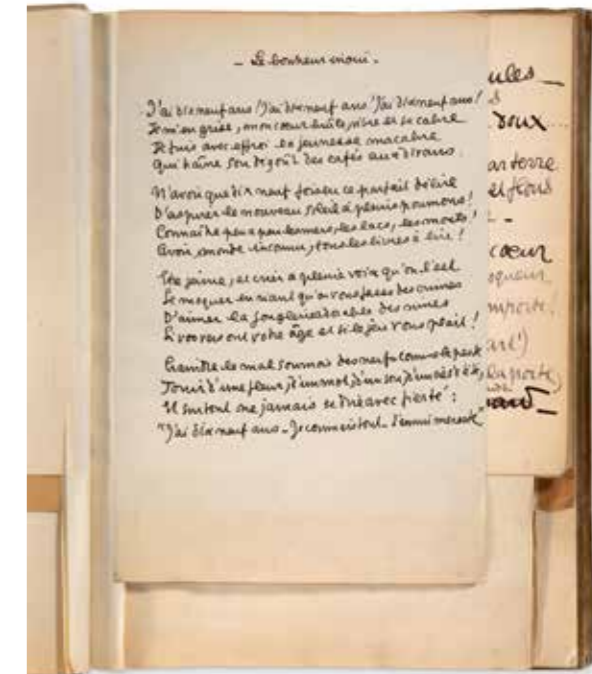 — Le bonheur inouï —
J'ai dix neuf ans ! J'ai dix neuf ans ! J'ai dix neuf ans !
Je m'en grise, mon cœur brûle, vibre et se cabre
Je fuis avec effroi la jeunesse macabre
Qui traîne son dégoût des cafés aux divans.
N'avoir que dix neuf fois eu ce parfait délire
D'aspirer le nouveau soleil à pleins poumons !
Connaître peu à peu les mers, les lacs, les monts !
Avoir, monde inconnu, tous les livres à lire !
jeune, et crier à pleine voix qu'on l'est
Se moquer en riant qu'on vous fasse des
D'aimer la des
Si vos vers ont votre âge et si le jeu vous plaît !
Craindre le mal sournois des nerfs comme la peste
Jouir d'une fleur, d'un mot, d'un son, d'un
Et surtout ne jamais se dire avec fierté :
"J'ai dix neuf ans - Je connais tout - L'ennui me reste"
ules
s
doux
ar terre
et
cœur
oqueur
mporte !
art !)
la porte,